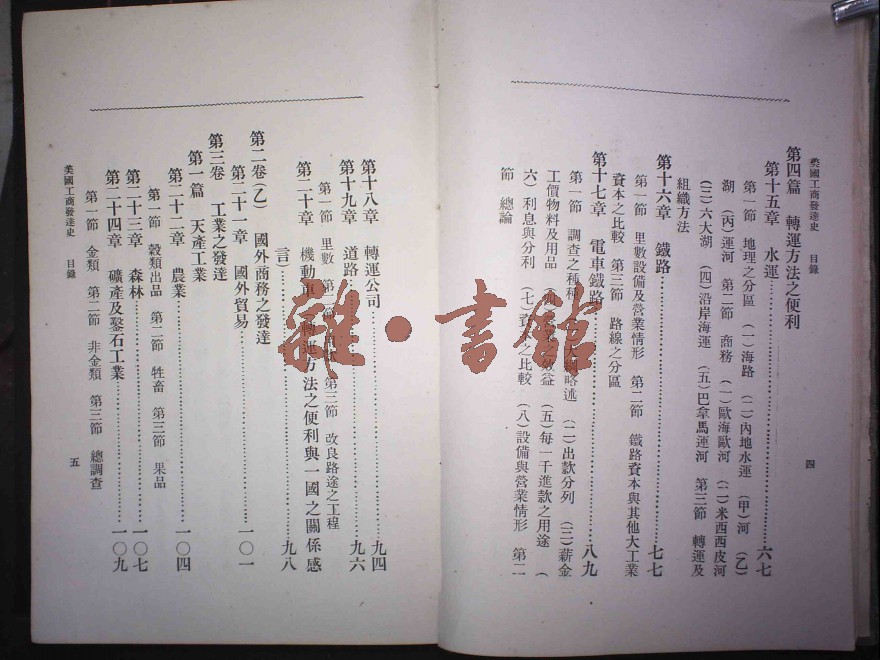 美國工商發達史 目錄 四
第四篇 轉運方法之便利
第十五章 水運……六七
第一節 地理之分區 (一)海路 (二)內地水運 (甲)河 (乙)
湖 (丙)運河 第二節 商務 (一)歐海歐河 (二)米西西皮河
(三)六大湖 (四)沿岸海運 (五)巴拿馬運河 第三節 轉運及
組織方法
第十六章 鐵路……七七
第一節 里數設備及營業情形 第二節 鐵路資本與其他大工業
資本之比較 第三節 路線之分區
第十七章 電車鐵路……八九
第一節 調查之種種 大綱略述 (二)出款分列 (三)薪金
工價物料及用品 (四) 之效益 (五)每一千進款之用途 (
六)利息與分利 (七)資本之比較 (八)設備與營業情形 第二
節 總論
第十八章 轉運公司……九四
第十九章 道路……九六
第一節 里數 第二節 第三節 改良路途之工程
第二十章 機動車 轉運方法之便利與一國之關係感
言……九八
第二卷(乙) 國外商務之發達
第二十一章 國外貿易……一〇一
第三卷 工業之發達
第一篇 天產工業
第二十二章 農業……一〇四
第一節 穀類出品 第二節 牲畜 第三節 果品
第二十三章 森林……一〇七
第二十四章 礦產及鑿石工業……一〇九
第一節 金類 第二節 非金類 第三節 總調查
美國工商發達史 目錄 五
雜·書館